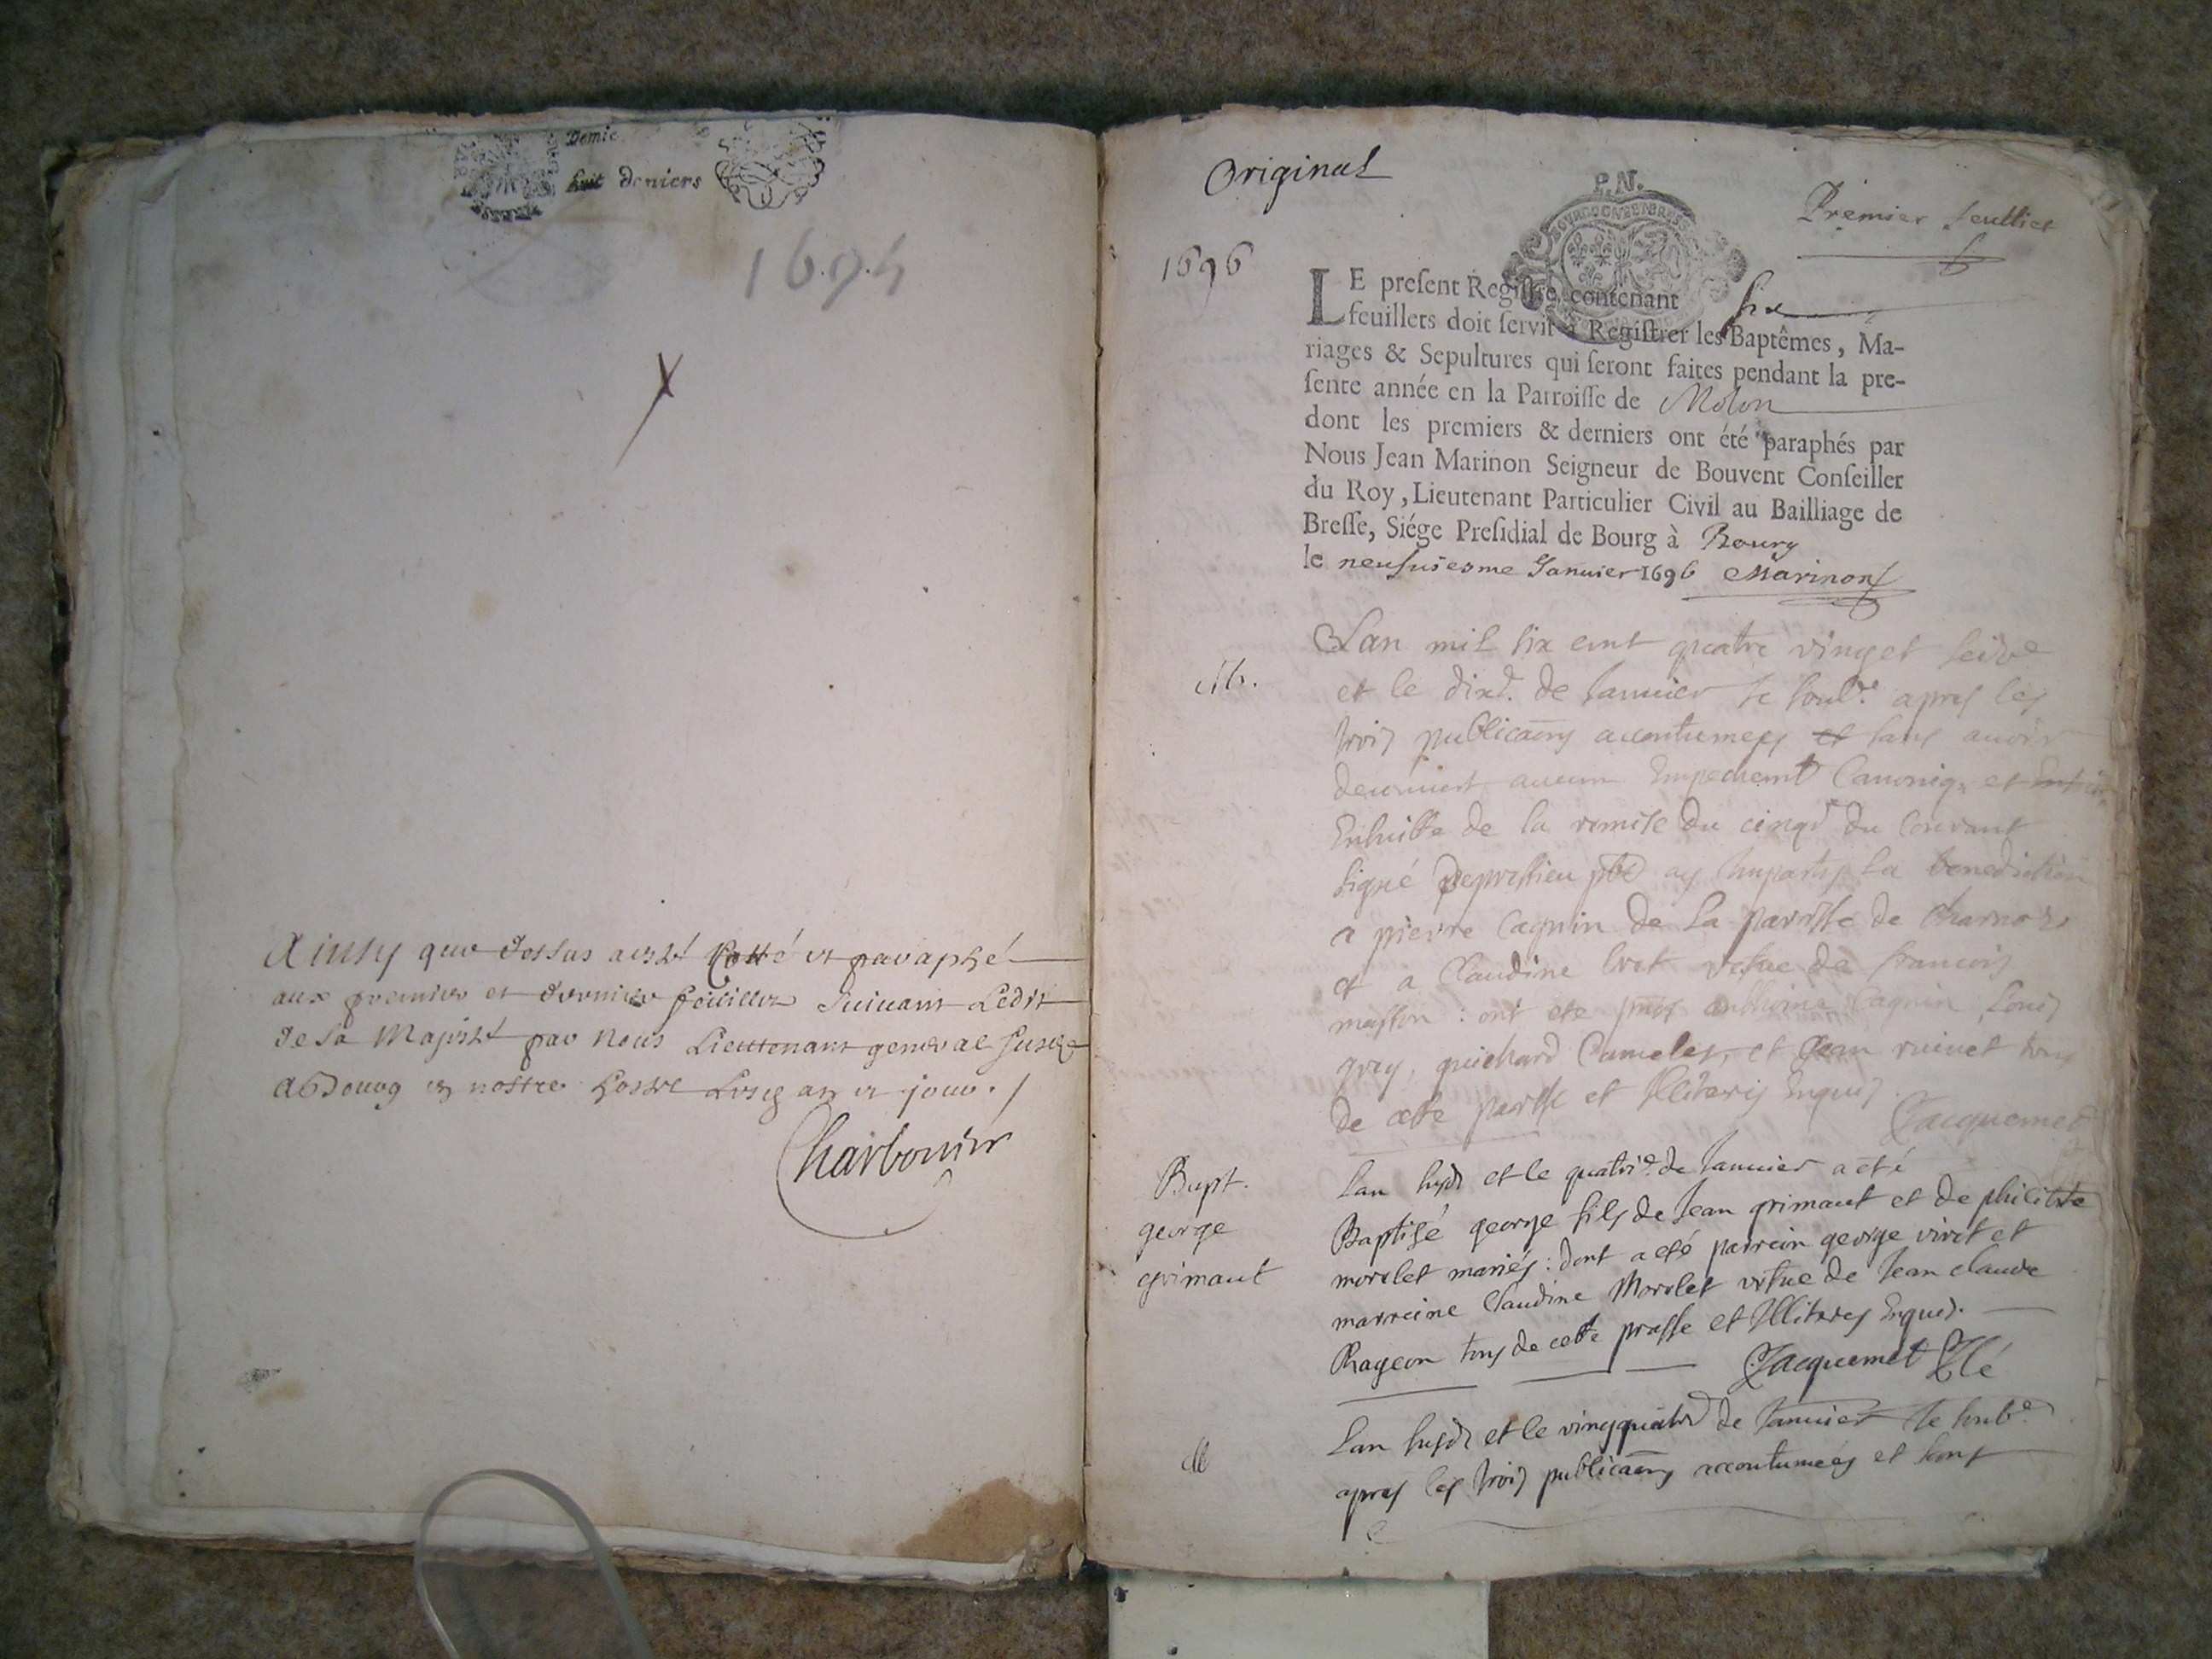 Demie
huit deniers
1694
Ainsy que dessus a esté Cotté et paraphé
aux premier et dernier feüillet suivant L'edit
de sa Majesté par Nous Lieutenant general susdit
a Bourg en nostre hostel Lesdits an et jour.
Charbonier
Original
P.N.
BOURGOGNE ET BRESSE
Premier feuillet
1696
LE present Registre contenant six
feuillets doit servir à Registrer les Baptêmes, Ma-
riages & Sepultures qui seront faites pendant la pre-
sente année en la Parroisse de Molon
dont les premiers & derniers ont été paraphés par
Nous Jean Marinon Seigneur de Bouvent Conseiller
du Roy, Lieutenant Particulier Civil au Bailliage de
Bresse, Siége Presidial de Bourg à Bourg
le neufuiesme Januier 1696 Marinon
M.
Lan mil six cent quatre vinget seize
et le dixe. de Januier Je soub.e apres les
trois publicaōns accoutumees et sans auoir
decouuert aucun Empechemt Canoniq. et
Ensuitte de la remise du cinqe du Courant
signé ptre ay Imparty la benediction
a pierre Cagnin de la parisse de
et a Claudine vefue de francois
: ont ete anthoine Cagnin Louis
guichard et Jean ruivet tous
de cette parisse et Illiteres Enquis
Jacquemet
Bapt.
george
grimaut
Lan susd. et le quatrie. de Januier a eté
Baptisé george fils de Jean grimaut et de philiberte
morelet mariés : dont a eté parrain george viret et
marreine Claudine Morelet vefue de Jean claude
Rageon tous de cette prasse et Illiteres Enquis.
Jacquemet
M
Lan susd. et le vingquatre de Januier Je soub.e
apres les trois publicaōns accoutumeés et sans